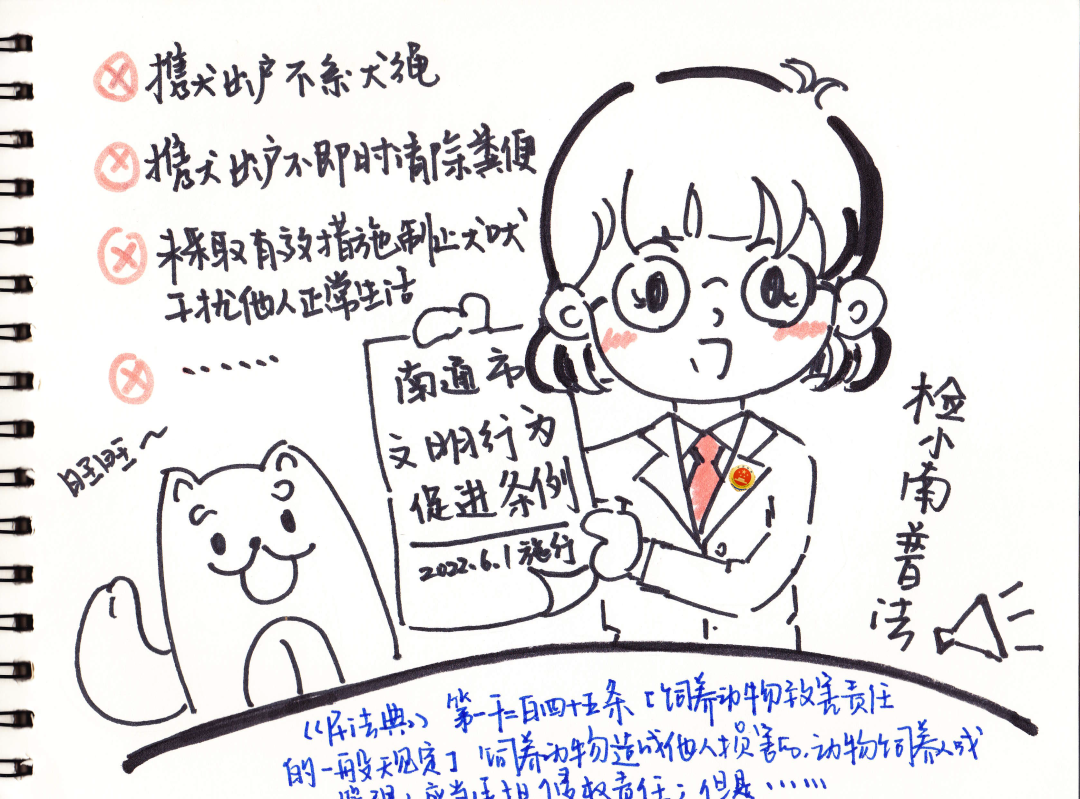 携犬出户不系犬绳
携犬出户不即时清除粪便
未采取有效措施制止犬吠
干扰他人正常生活
……
南通市
文明行为
促进条例
2022.6.1施行
旺旺~
检小南普法
《民法典》第一千二百四十五条「饲养动物致害责任
的一般规定」饲养动物造成他人损害的,动物饲养人或
应当承担侵权责任;但是……